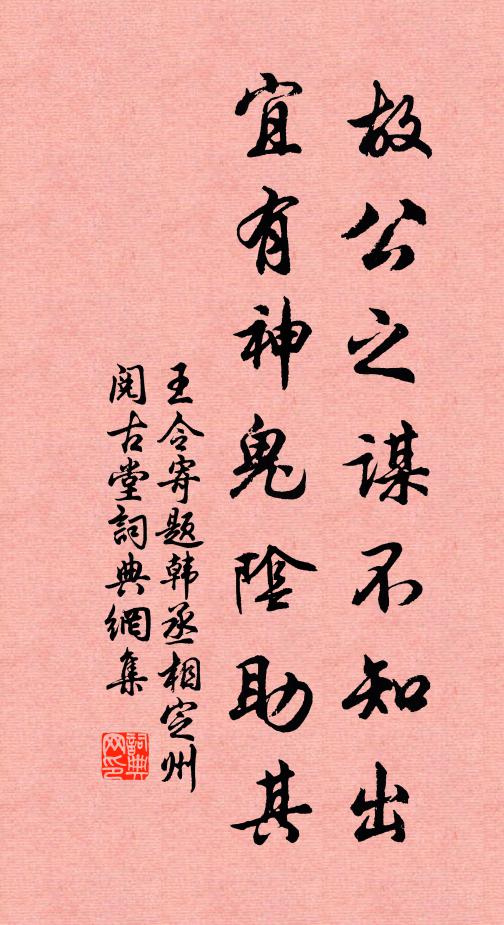 故公之謀不知出
宜有神鬼陰助其
王令寄题韩丞相定州
阅古堂詞典網集
詞典网印